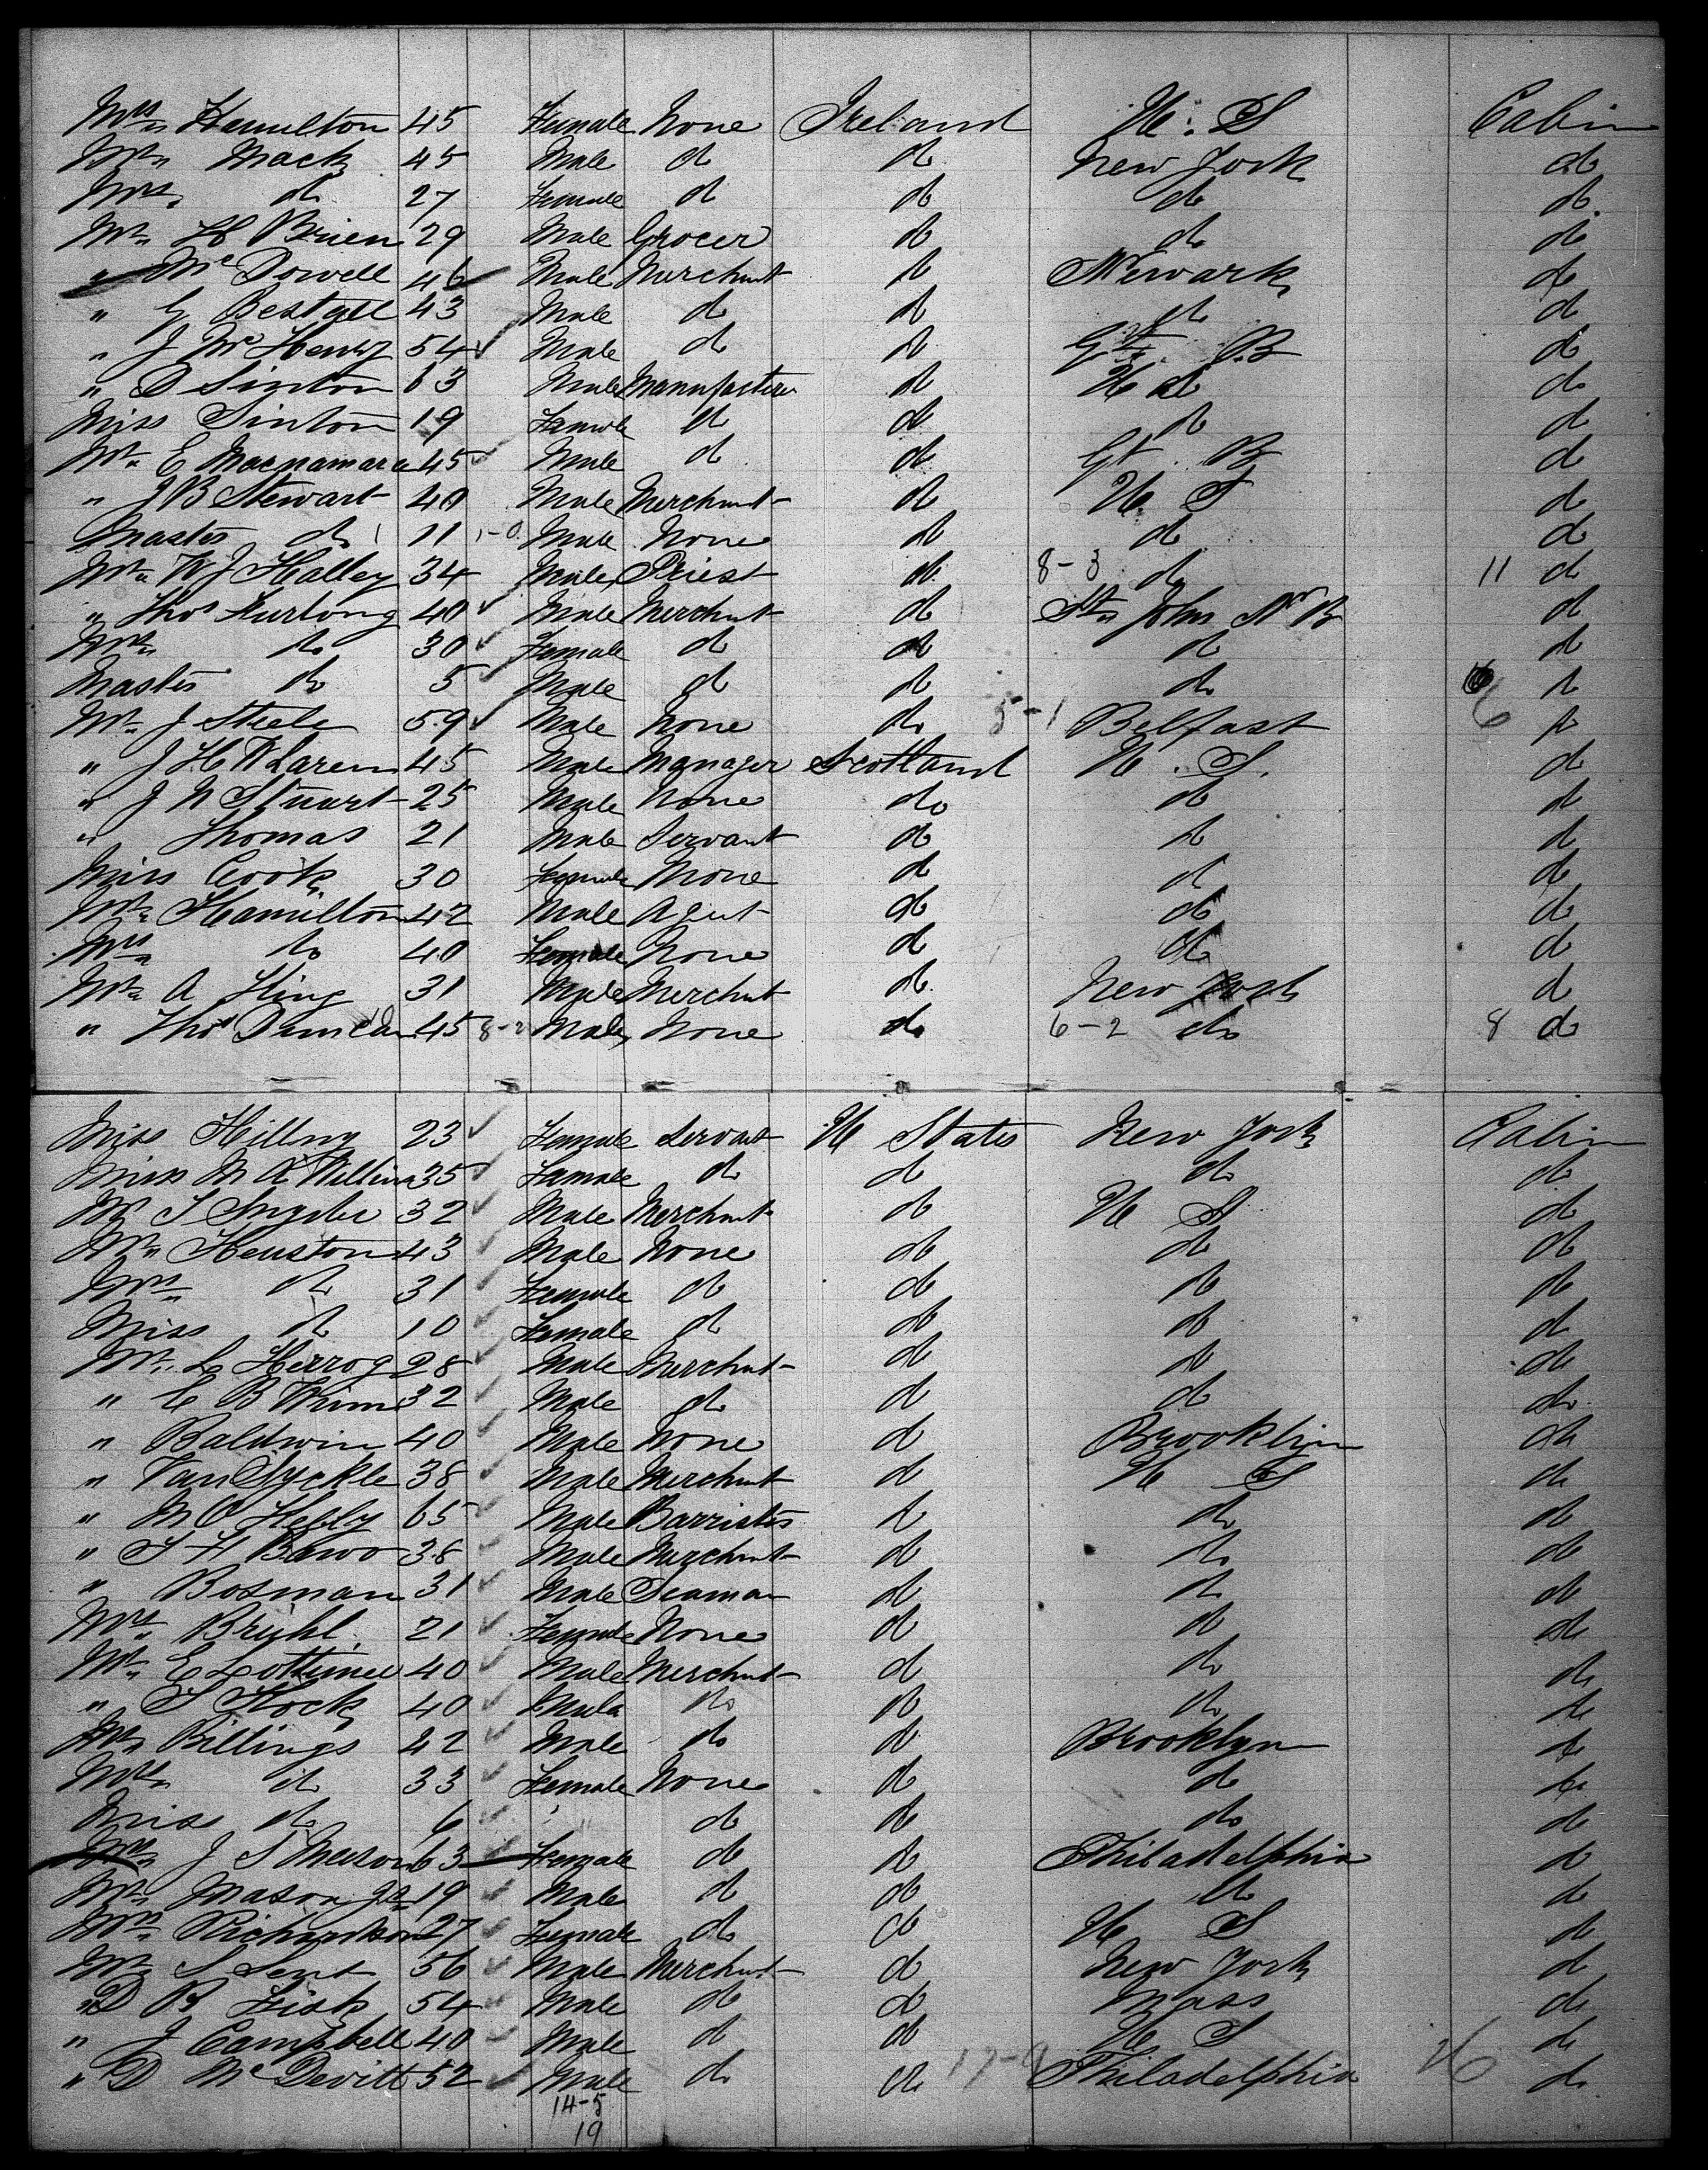 Mrs Hamilton 45 Female None Ireland U. S Cabin
Mr Mack 45 Male do do New York do
Mrs do 27 Female do do do do
Mr H Brien 29 Male Grocer do do do
" McDowell 46 Male Merchant do Newark do
" G Bestall 43 Male do do do do
" J McHenry 54 Male do do Gt B do
" D Sinton 63 Male Manufacturer do U S do
Miss Sinton 19 Female do do do do
Mr E Macnamara 45 Male do do Gt B do
" J B Stewart 40 Male Merchant do U. S do
Master do 11 1-0 Male None do do do
Mr W J Halley 34 Male Priest do 8-3 do 11 do
" Thos Furlong 40 Male Merchant do St John N B do
Mrs do 30 Female do do do do
Master do 5 Male do do do 6 do
Mr J Steele 59 Male None do 5-1 Belfast 6 do
" J H Laren 45 Male Manager Scotland U. S. do
" J N Stuart 25 Male None do do do
" Thomas 21 Male Servant do do do
Miss Cook 30 Female None do do do
Mr Hamilton 42 Male Agent do do do
Mrs do 40 Female None do do do
Mr A King 31 Male Merchant do New York do
" Thos Duncan 45 8-2 Male None do 6-2 do 8 do
Miss Hillny 23 Female Servant U States New York Cabin
Miss M A 35 Female do do do do
Mr S Snyder 32 Male Merchant do U S do
Mr Heuston 43 Male None do do do
Mrs do 31 Female do do do do
Miss do 10 Female do do do do
Mr L Herzog 28 Male Merchant do do do
" C B 32 Male do do do do
" Baldwin 40 Male None do Brooklyn do
" Van Syckle 38 Male Merchant do U S do
" M O 65 Male Barrister do do do
" S H 38 Male Merchant do do do
" Bosman 31 Male Seaman do do do
Mrs Brühl 21 Female None do do do
Mr E 40 Male Merchant do do do
" S Flock 40 Male do do do do
Mr Billings 42 Male do do Brooklyn do
Mrs do 33 Female None do do do
Miss do 6 " do do do do
Mrs J S Mason 63 Female do do Philadelphia do
Mr Mason Jr 19 Male do do do do
Mrs Richardson 27 Female do do U S do
Mr S Sent 56 Male Merchant do New York do
" D B Fisk 54 Male do do Mass do
" J Campbell 40 Male do do U S do
" D McDevitt 52 Male do do 17-9 Philadelphia 26 do
14-5
19